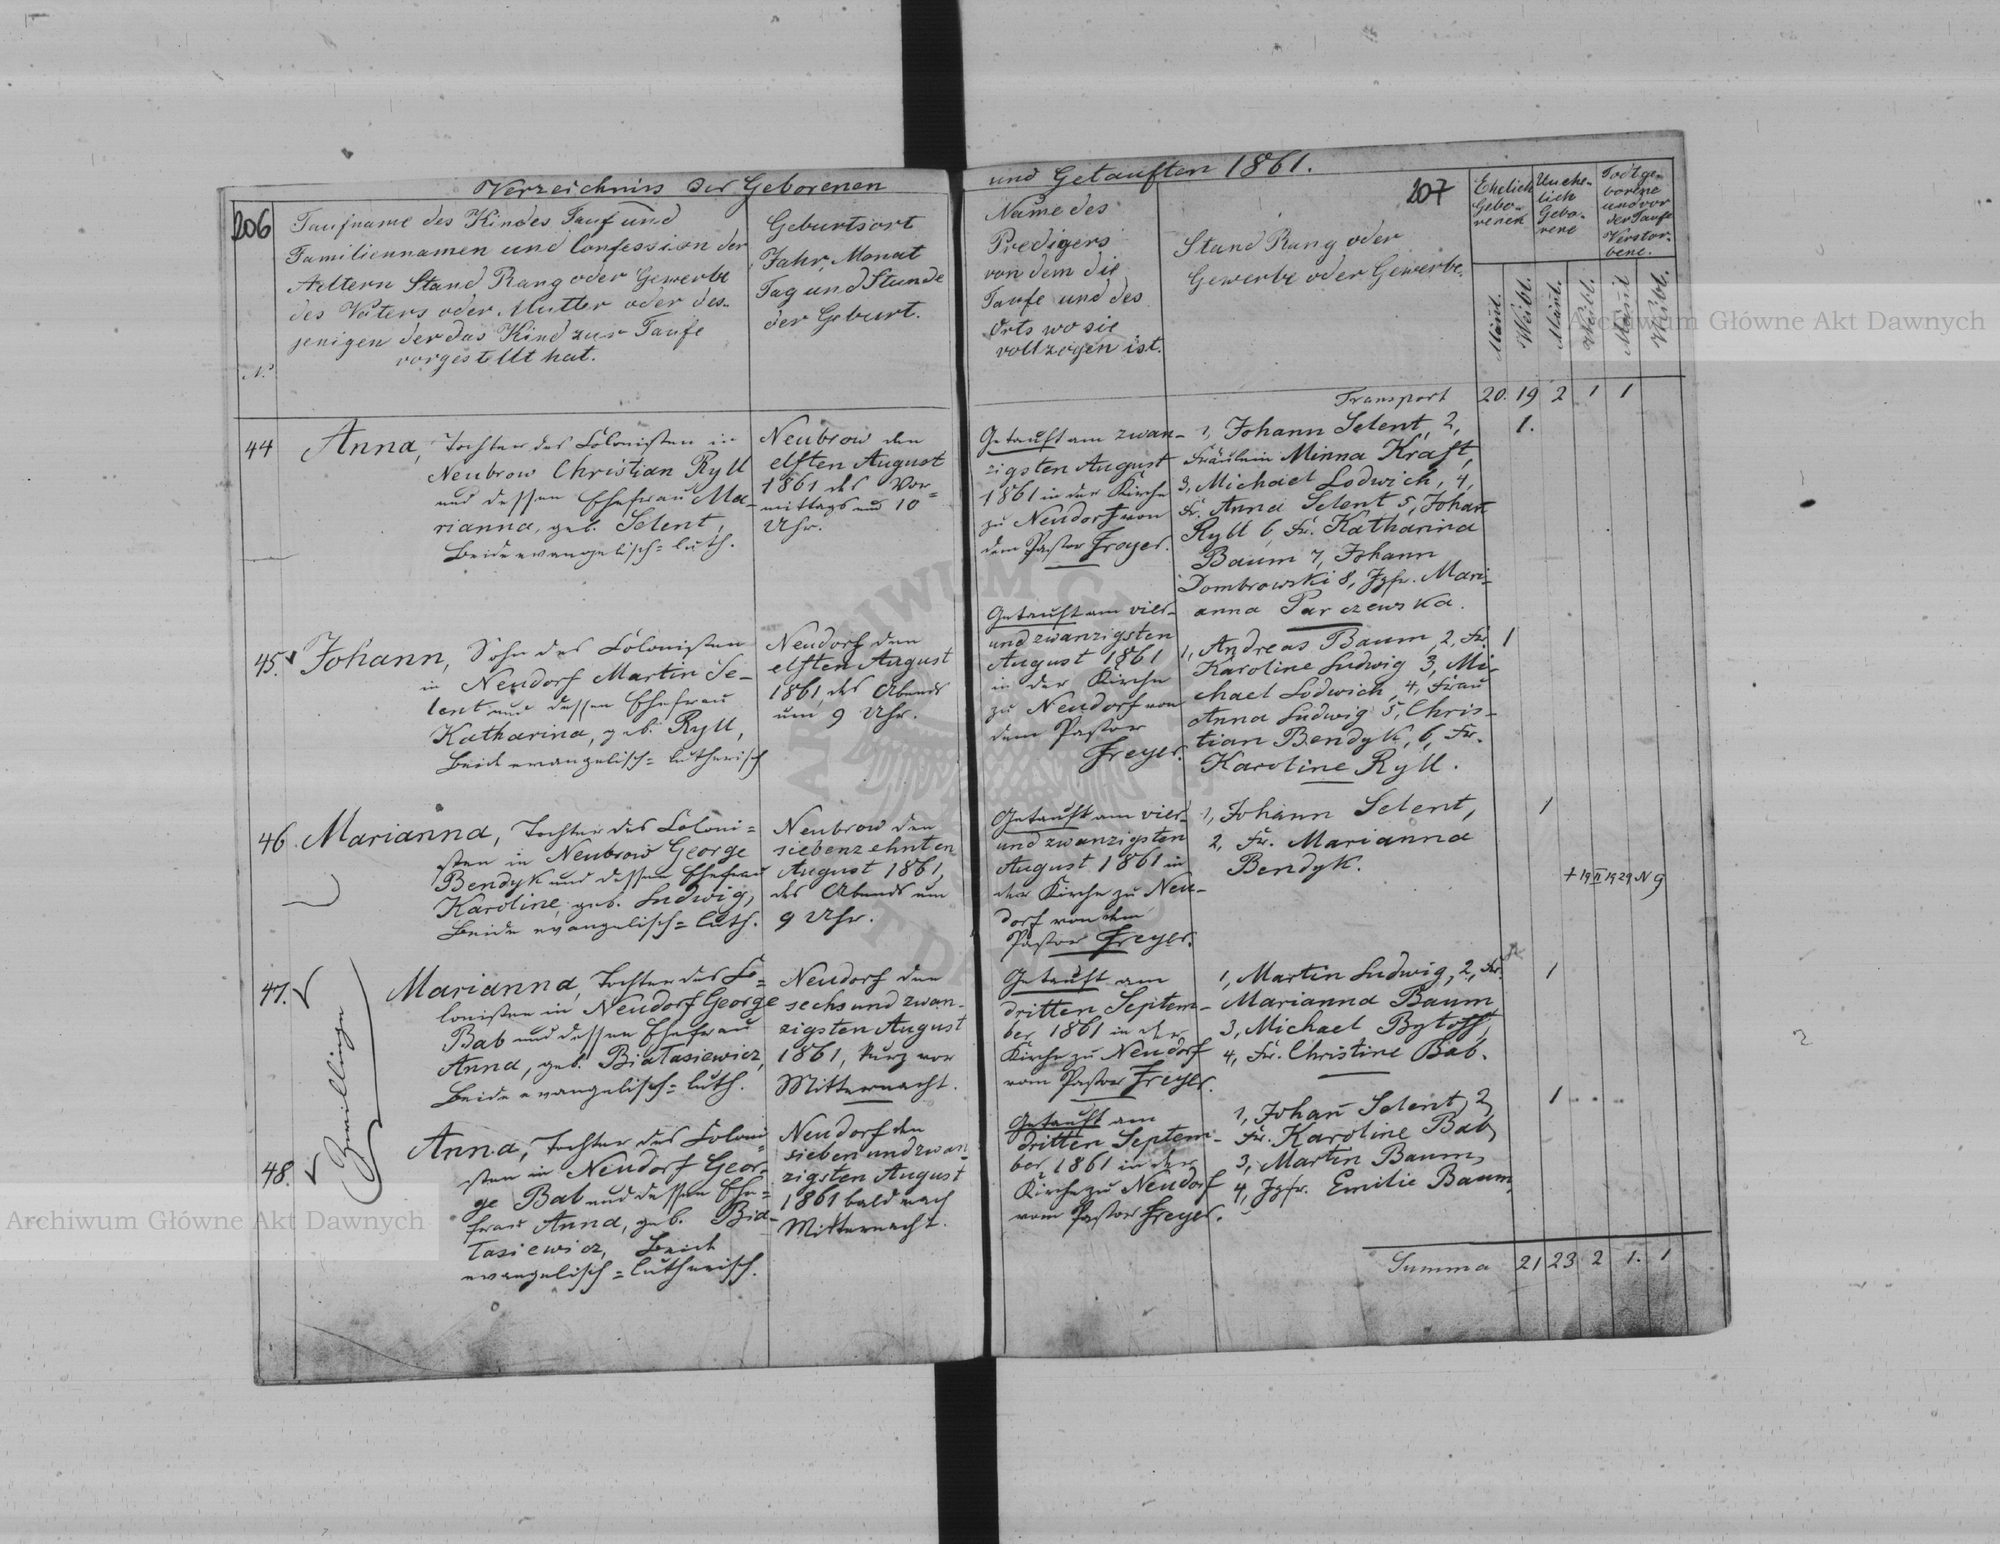 Verzeichniss der Geborenen
206
Taufname des Kindes Tauf und
Familiennamen und Confession der
Aeltern Stand Rang oder Gewerbe
des Vaters oder Mutter oder des-
jenigen der das Kind zur Taufe
vorgestellt hat.
Geburtsort
Jahr, Monat
Tag und Stunde
der Geburt.
N.
44
Anna, Tochter des Colonisten in
Neubrow Christian Ryll
und dessen Ehefrau Ma-
rianna, geb. Selent,
Beide evangelisch=luth.
Neubrow den
elften August
1861 des Vor=
mittags um 10
Uhr.
45.
Johann, Sohn des Colonisten
in Neudorf Martin Se-
lent und dessen Ehefrau
Katharina, geb. Ryll,
Beide evangelisch=lutherisch
Neudorf den
elften August
1861, des Abends
um 9 Uhr.
46.
Marianna, Tochter des Coloni=
sten in Neubrow George
Bendyk und dessen Ehefrau
Karoline, geb. Ludwig,
Beide evangelisch=luth.
Neubrow den
siebenzehnten
August 1861,
des Abends um
9 Uhr.
Zwillinge
47.
Marianna, Tochter des Co=
lonisten in Neudorf George
Bab und dessen Ehefrau
Anna, geb. Białasiewicz,
Beide evangelisch=luth.
Neudorf den
sechs und zwan-
zigsten August
1861, kurz vor
Mitternacht.
48.
Anna, Tochter des Coloni=
sten in Neudorf Geor-
ge Bab und dessen Ehe=
frau Anna, geb. Bia-
łasiewicz, Beide
evangelisch=lutherisch.
Neudorf den
sieben und zwan-
zigsten August
1861 bald nach
Mitternacht.
und Getauften 1861.
207
Name des
Predigers
von dem die
Taufe und des
Orts wo sie
vollzogen ist.
Stand Rang oder
Gewerbe oder Gewerbe.
Ehelich
Gebo-
renen
Unehe-
lich
Gebo-
rene
Todtge-
borene
und vor
der Taufe
Verstor-
bene.
Mänl.
Weibl.
Mänl.
Weibl.
Mänl
Weibl.
Transport 20. 19 2 1 1
Getauft am zwan-
zigsten August
1861 in der Kirche
zu Neudorf von
dem Pastor Freyer.
1, Johann Selent, 2,
Fräulein Minna Kraft,
3, Michael Lodwich, 4,
Fr. Anna Selent 5, Johan
Ryll 6, Fr. Katharina
Baum 7, Johann
Dombrowski 8, Jgfr. Mari-
anna Parczewska.
1.
Getauft am vier-
und zwanzigsten
August 1861
in der Kirche
zu Neudorf von
dem Pastor
Freyer.
1, Andreas Baum, 2, Fr.
Karoline Ludwig 3, Mi-
chael Lodwich, 4, Frau
Anna Ludwig 5, Chris-
tian Bendyk, 6, Fr.
Karoline Ryll.
1
Getauft am vier-
und zwanzigsten
August 1861 in
der Kirche zu Neu-
dorf von dem
Pastor Freyer.
1, Johann Selent,
2, Fr. Marianna
Bendyk.
1
+ 19 II 1929 N 9
Getauft am
dritten Septem-
ber 1861 in der
Kirche zu Neudorf
vom Pastor Freyer.
1, Martin Ludwig, 2, Fr.
Marianna Baum
3, Michael Bytoff,
4, Fr. Christine Bab.
1
Getauft am
dritten Septem-
ber 1861 in der
Kirche zu Neudorf
vom Pastor Freyer.
1, Johan̄ Selent, 2,
Fr. Karoline Bab,
3, Martin Baum,
4, Jgfr. Emilie Baum,
1
Summa 21 23 2 1. 1
Archiwum Główne Akt Dawnych
Archiwum Główne Akt Dawnych